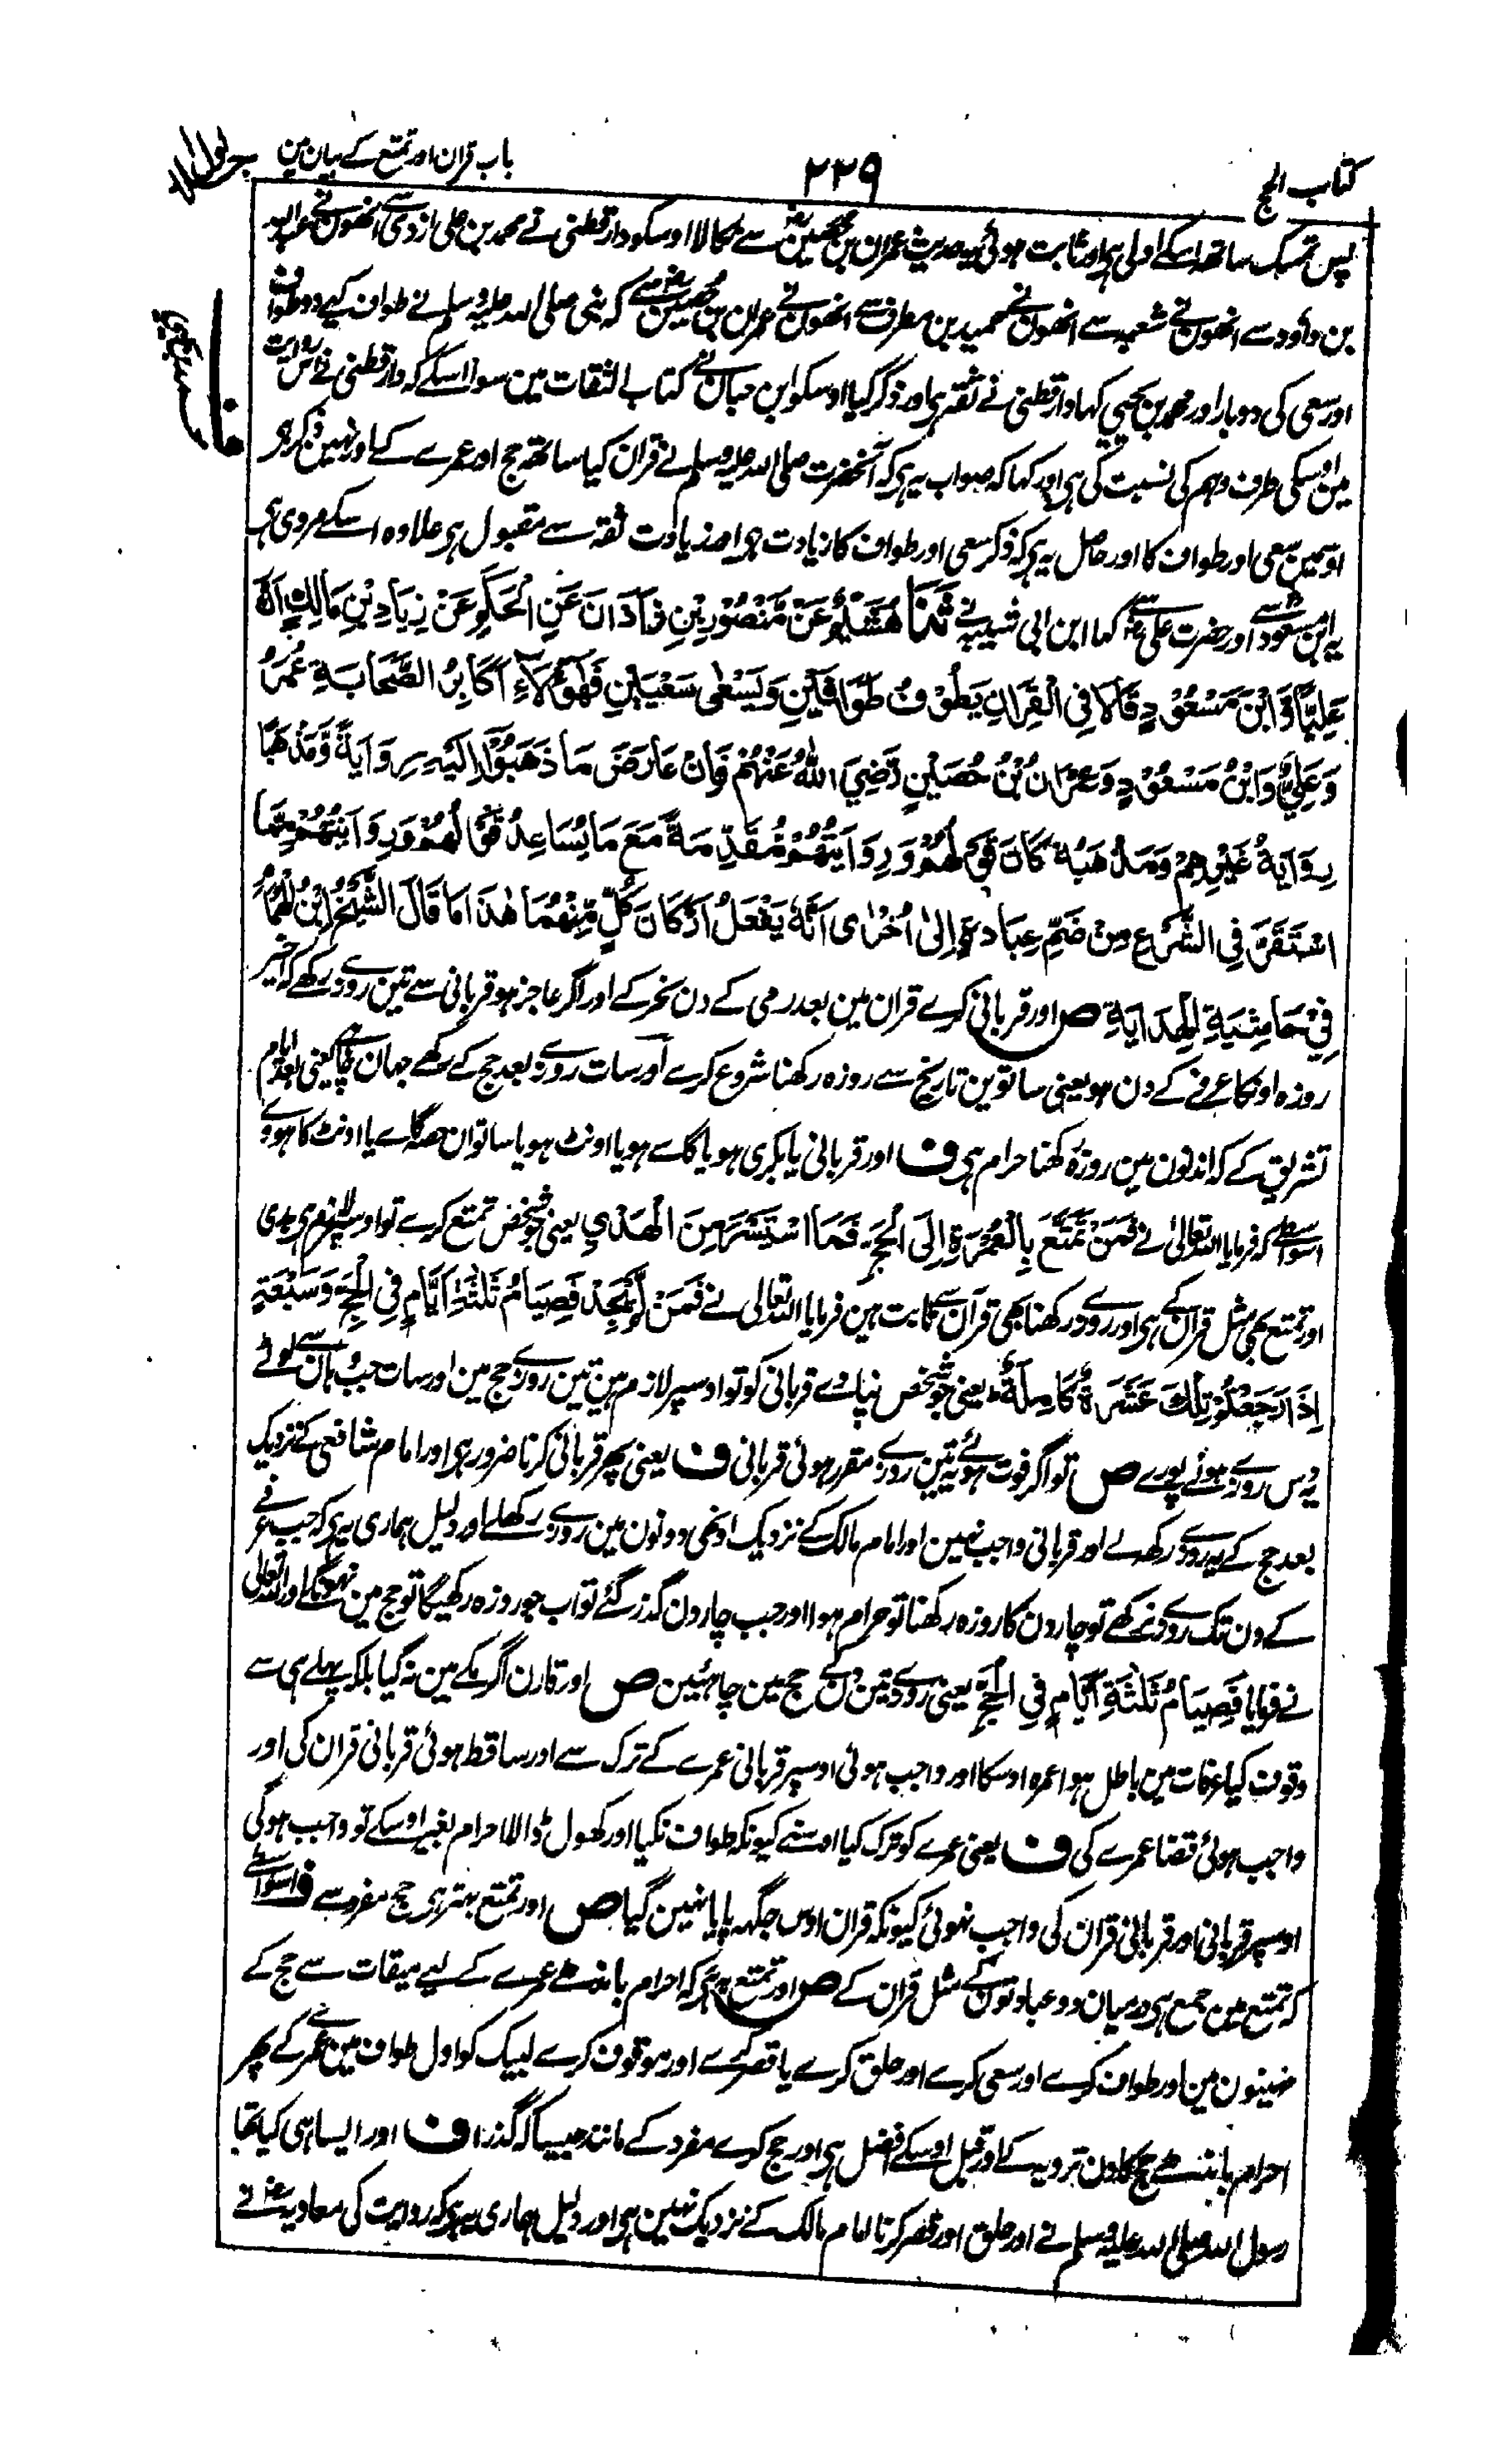 کتاب الحج
۲۲۹
باب قران اور تمتع کے بیان مین
پس تمسک ساتھ اسکے اولی ہی اور ثابت ہوئی یہ حدیث عمران بن حصین رض سے نکالا اوسکو دارقطنی نے محمد بن علی ازدی سے انھون نے عبد اللہ
بن داود سے انھون نے شعبہ سے انھون نے حمید بن مطرف سے انھون نے عمران بن حصین رض سے کہ نبی صلی اللہ علیہ وسلم نے طواف کیے دو طواف
اور سعی کی دوبار اور محمد بن یحیی کہا دارقطنی نے ثقہ ہی اور ذکر کیا اوسکو ابن حبان نے کتاب الثقات مین سوا اسکے کہ دارقطنی نے اس روایت
مین اوسکی طرف وہم کی نسبت کی ہی اور کہا کہ صواب یہ ہی کہ آنحضرت صلی اللہ علیہ وسلم نے قران کیا ساتھ حج اور عمرے کے اور نہین ذکر ہی
اوسمین سعی اور طواف کا اور حاصل یہ ہی کہ ذکر سعی اور طواف کا زیادت ہی اور زیادت ثقہ سے مقبول ہی علاوہ اسکے مروی ہی
یہ ابن مسعود رض سے اور حضرت علی رض سے کہا ابن ابی شیبہ نے ثَنَا هُشَيْمٌ عَنْ مَنْصُوْرِ بْنِ زَاذَانَ عَنِ الْحَكَمِ عَنْ زِيَادِ بْنِ مَالِكٍ اَنَّ
عَلِيًّا وَّابْنَ مَسْعُوْدٍ قَالَا فِى الْقِرَانِ يَطُوْفُ طَوَافَيْنِ وَيَسْعٰى سَعْيَيْنِ فَهٰؤُلَاءِ اَكَابِرُ الصَّحَابَةِ عُمَرُ
وَعَلِيٌّ وَابْنُ مَسْعُوْدٍ وَعِمْرَانُ بْنُ حُصَيْنٍ رَضِيَ اللهُ عَنْهُمْ فَاِنْ عَارَضَ مَا ذَهَبُوْا اِلَيْهِ رِوَايَةً وَّمَذْهَبًا
رِوَايَةُ غَيْرِهِمْ وَمَذْهَبُهُ كَانَ قَوْلُهُمْ وَرِوَايَتُهُمْ مُقَدَّمَةً مَعَ مَا يُسَاعِدُ قَوْلَهُمْ وَرِوَايَتَهُمْ مِمَّا
اسْتَقَرَّ فِى الشَّرْعِ مِنْ ضَمِّ عِبَادَةٍ اِلٰى اُخْرٰى اَنَّهُ يَفْعَلُ اَرْكَانَ كُلٍّ مِّنْهُمَا هٰذَا مَا قَالَ الشَّيْخُ ابْنُ الْهُمَامِ
فِىْ حَاشِيَةِ الْهِدَايَةِ ص اور قربانی کرے قران مین بعد رمی کے دن نحر کے اور اگر عاجز ہو قربانی سے تین روزے رکھے کہ اخیر
روزہ اونکا عرفے کے دن ہو یعنی ساتوین تاریخ سے روزہ رکھنا شروع کرے اور سات روزے بعد حج کے رکھے جہان چاہے یعنی بعد ایام
تشریق کے کہ اندنون مین روزہ رکھنا حرام ہی ف اور قربانی یا بکری ہو یا گاے ہو یا اونٹ ہو یا ساتوان حصہ گاے یا اونٹ کا ہووے
اسواسطے کہ فرمایا اللہ تعالیٰ نے فَمَنْ تَمَتَّعَ بِالْعُمْرَةِ اِلَى الْحَجِّ فَمَا اسْتَيْسَرَ مِنَ الْهَدْيِ یعنی جو شخص تمتع کرے تو اوسپر لازم ہی ہدی
اور تمتع بھی مثل قران کے ہی اور روزے رکھنا بھی قرآن سے ثابت ہین فرمایا اللہ تعالی نے فَمَنْ لَّمْ يَجِدْ فَصِيَامُ ثَلٰثَةِ اَيَّامٍ فِى الْحَجِّ وَسَبْعَةٍ
اِذَا رَجَعْتُمْ تِلْكَ عَشَرَةٌ كَامِلَةٌ یعنی جو شخص نپاوے قربانی کو تو اوسپر لازم ہین تین روزے حج مین اور سات جب وہان سے لوٹے
یہ دس روزے ہوئے پورے ص تو اگر فوت ہوئے یہ تین روزے مقرر ہوئی قربانی ف یعنی پھر قربانی کرنا ضرور ہی اور امام شافعی کے نزدیک
بعد حج کے یہ روزے رکھ لے اور قربانی واجب نہین اور امام مالک کے نزدیک اونھی دونون مین روزے رکھ لے اور دلیل ہماری یہ ہی کہ جب عرفے
کے دن تک روزے نرکھے تو چار دن کا روزہ رکھنا تو حرام ہوا اور جب چار دن گذر گئے تو اب جو روزہ رکھیگا تو حج مین نہونگے اور اللہ تعالی
نے فرمایا فَصِيَامُ ثَلٰثَةِ اَيَّامٍ فِى الْحَجِّ یعنی روزے تین دن کے حج مین چاہئین ص اور قارن اگر مکے مین نہ گیا بلکہ پہلے ہی سے
وقوف کیا عرفات مین باطل ہوا عمرہ اوسکا اور واجب ہوئی اوسپر قربانی عمرے کے ترک سے اور ساقط ہوئی قربانی قران کی اور
واجب ہوئی قضا عمرے کی ف یعنی عمرے کو ترک کیا اوسنے کیونکہ طواف نکیا اور کھول ڈالا احرام بغیر اوسکے تو واجب ہوگی
اوسپر قربانی اور قربانی قران کی واجب نہوئی کیونکہ قران اوس جگہہ پایا نہین گیا ص اور تمتع بہتر ہی حج مفرد سے ف اسواسطے
کہ تمتع مین جمع ہی درمیان دو عبادتون کے مثل قران کے ص اور تمتع یہ ہی کہ احرام باندھے عمرے کے لیے میقات سے حج کے
مہینون مین اور طواف کرے اور سعی کرے اور حلق کرے یا قصر کرے اور موقوف کرے لبیک کو اول طواف مین عمرے کے پھر
احرام باندھے حج کا دن ترویہ کے اور قبل اوسکے افضل ہی اور حج کرے مفرد کے مانند جیسا کہ گذرا ف اور ایسا ہی کیا تھا
رسول اللہ صلی اللہ علیہ وسلم نے اور حلق اور قصر کرنا امام مالک کے نزدیک نہین ہی اور دلیل ہماری یہ ہی کہ روایت کی معاویہ رض نے